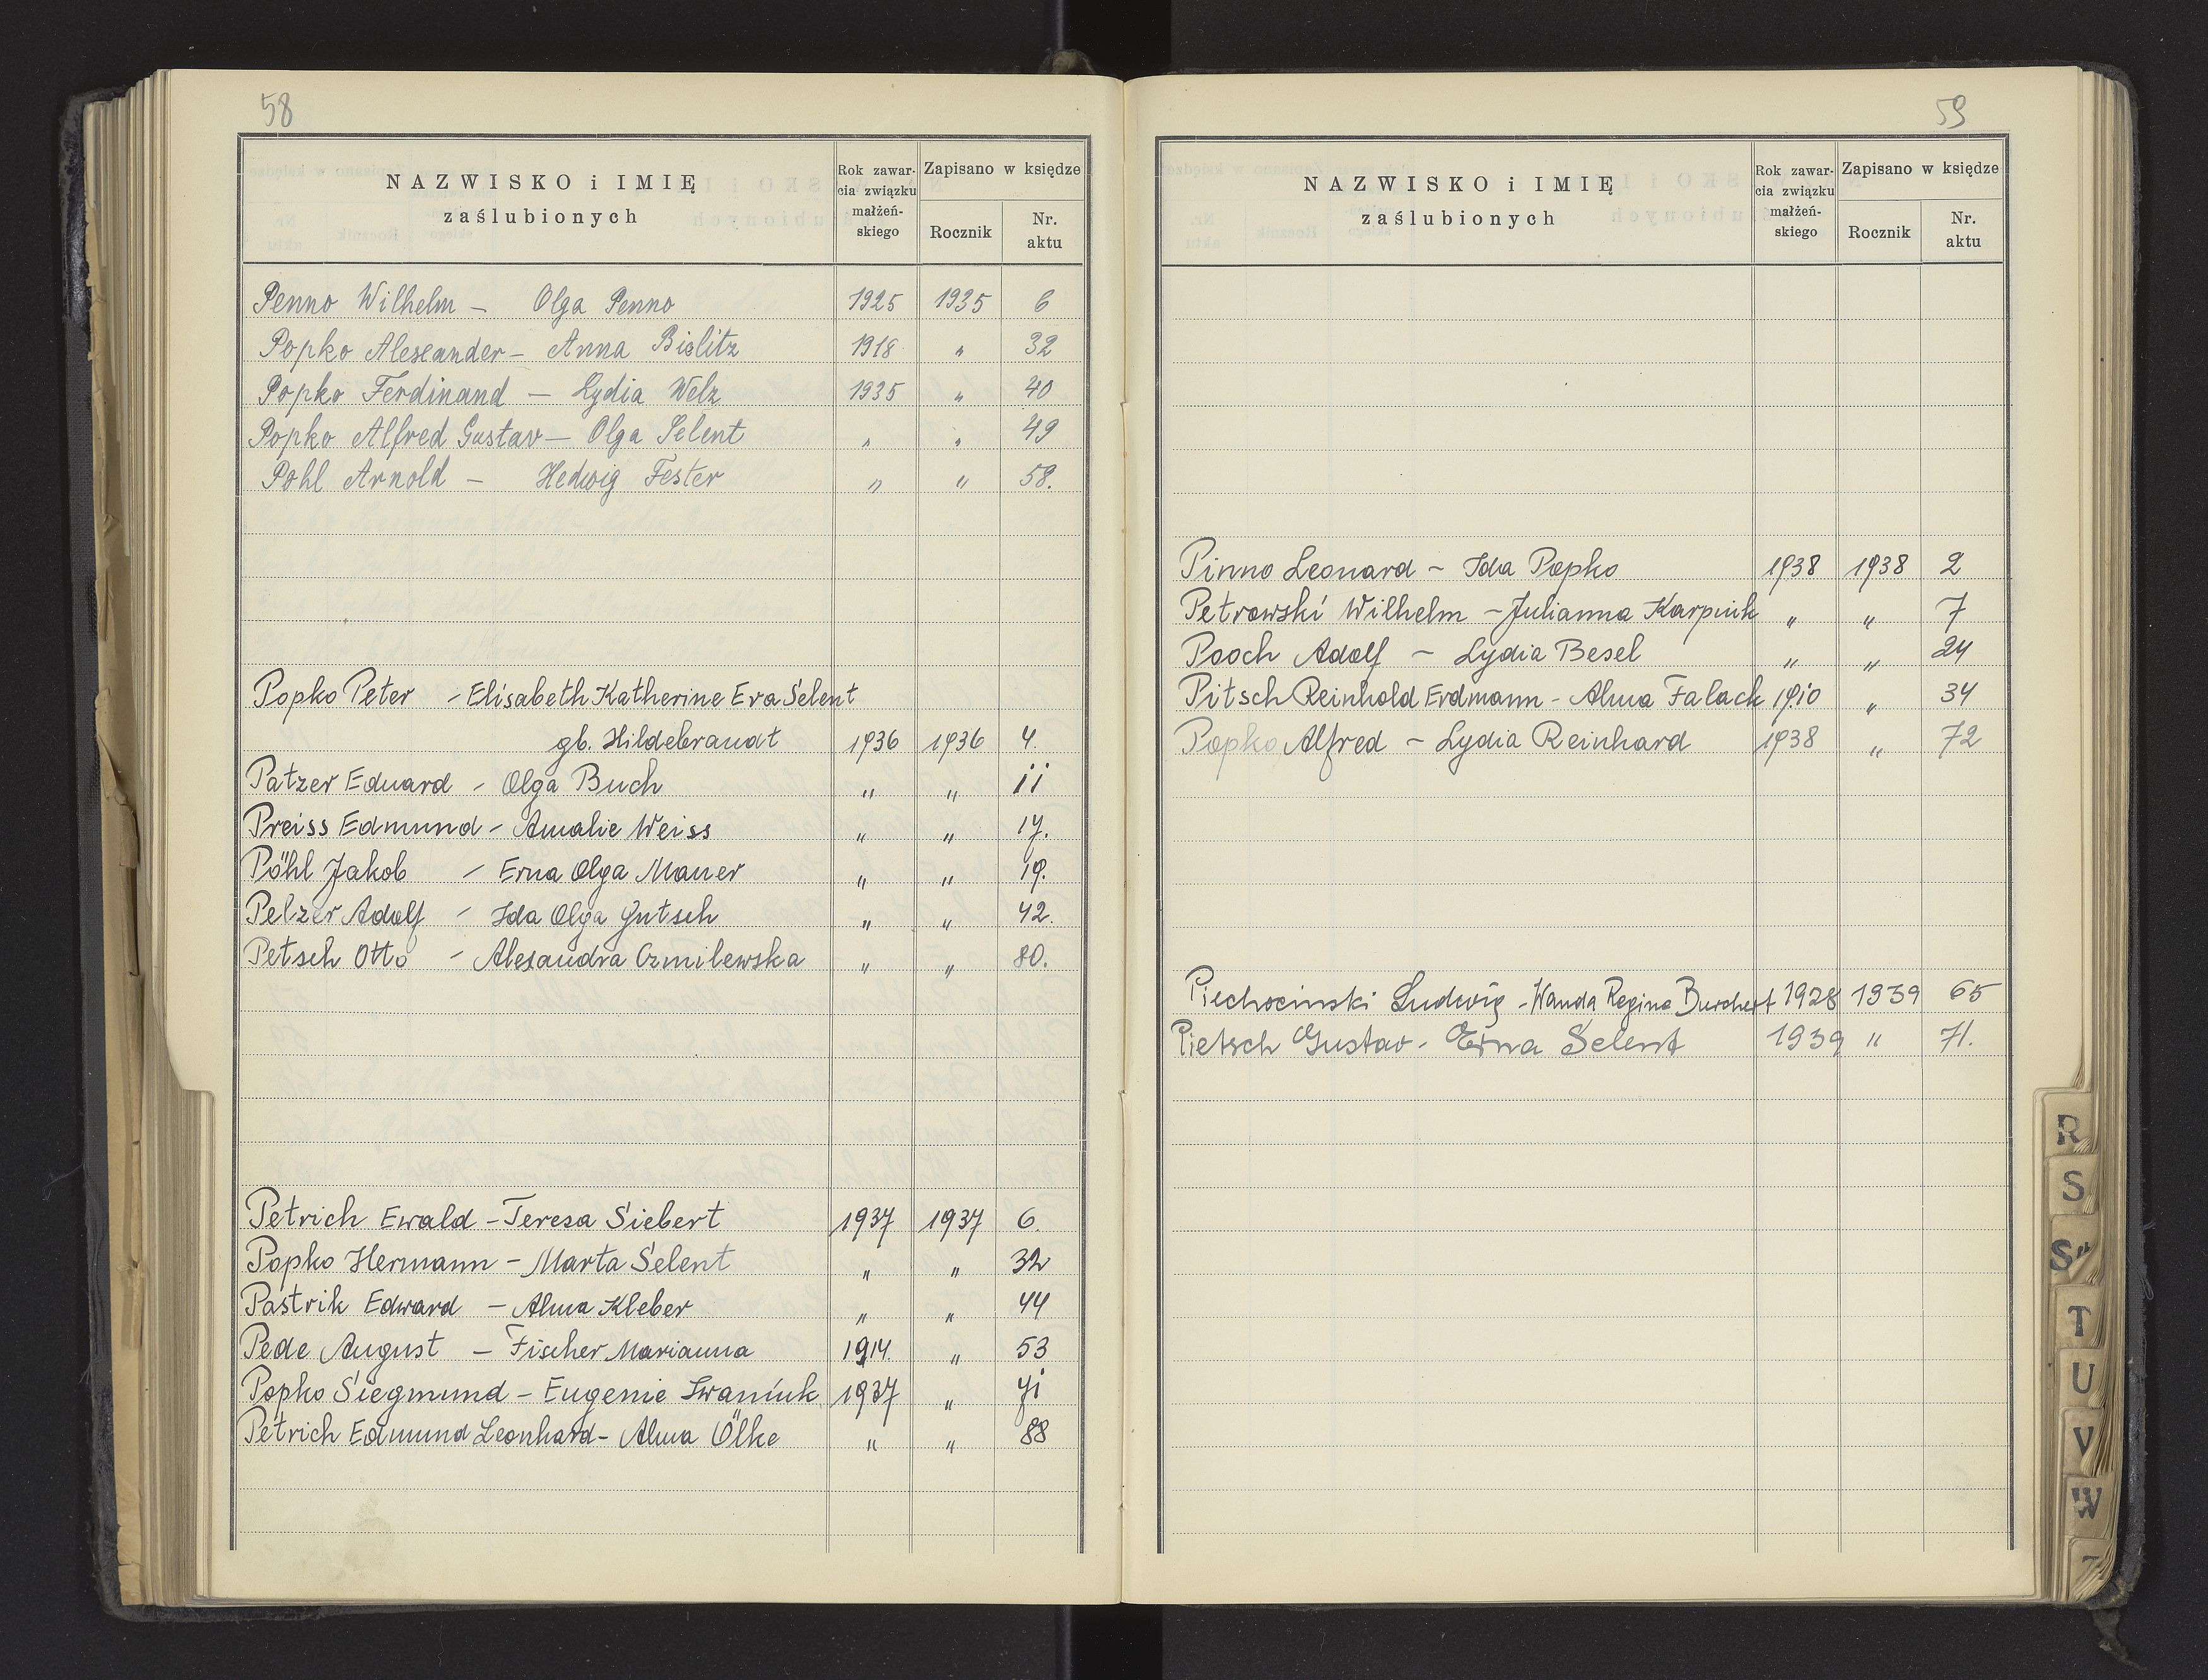 58
NAZWISKO i IMIĘ
zaślubionych
Rok zawar-
cia związku
małżeń-
skiego
Zapisano w księdze
Rocznik
Nr.
aktu
Penno Wilhelm — Olga Penno 1925 1935 6
Popko Alexander — Anna Bielitz 1918 " 32
Popko Ferdinand — Lydia Welz 1935 " 40
Popko Alfred Gustav — Olga Selent " " 49
Pohl Arnold — Hedwig Fester " " 58.
Popko Peter - Elisabeth Katherine Eva Selent
gb. Hildebrandt 1936 1936 4.
Patzer Eduard - Olga Buch " " 11
Preiss Edmund - Amalie Weiss " " 17.
Pöhl Jakob - Erna Olga Mauer " " 19.
Pelzer Adolf - Ida Olga Gutsch " " 42.
Petsch Otto - Alexandra Czmilewska " " 80.
Petrich Ewald - Teresa Siebert 1937 1937 6.
Popko Hermann - Marta Selent " " 32
Pastrik Edward - Alma Kleber " " 44
Pede August - Fischer Marianna 1914. " 53
Popko Siegmund - Eugenie Iwaniuk 1937 " 71
Petrich Edmund Leonhard - Alma Ölke " " 88
59
NAZWISKO i IMIĘ
zaślubionych
Rok zawar-
cia związku
małżeń-
skiego
Zapisano w księdze
Rocznik
Nr.
aktu
Pinno Leonard - Ida Popko 1938 1938 2
Petrowski Wilhelm - Julianna Karpiuk " " 7
Pooch Adolf - Lydia Besel " " 24
Pitsch Reinhold Erdmann - Alma Falack 1910 " 34
Popko Alfred - Lydia Reinhard 1938 " 72
Piechocinski Ludwig - Wanda Regina Burchert 1928 1939 65
Pietsch Gustav - Erna Selent 1939 " 71.
R
S
S"
T
U
V
W